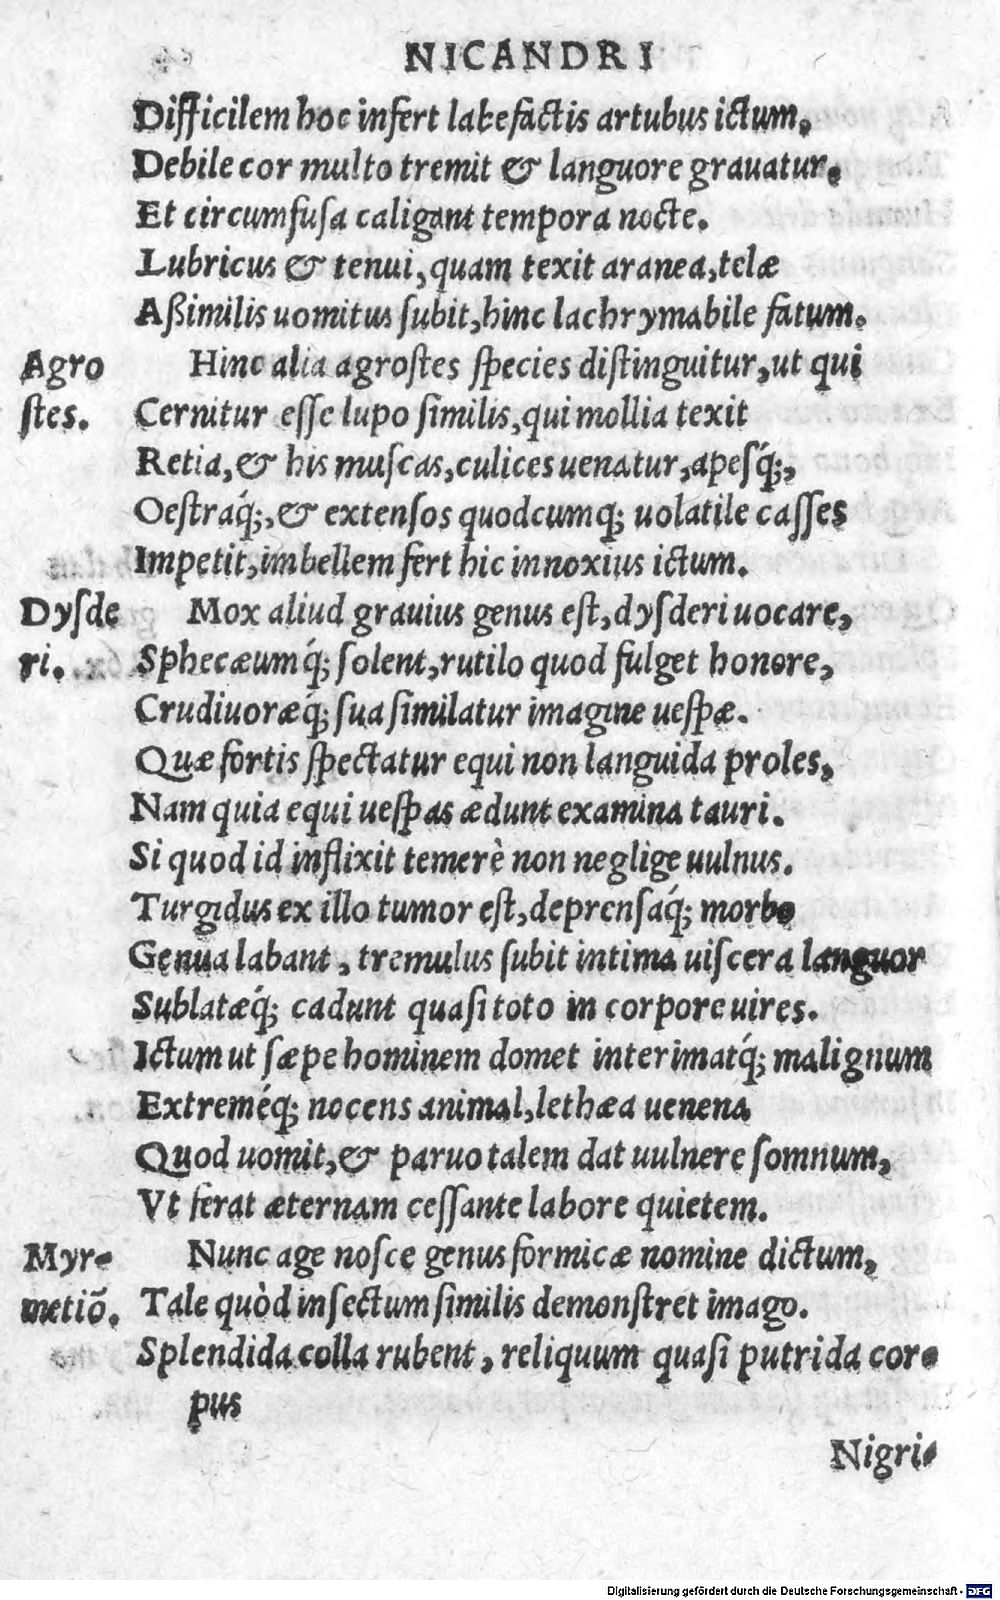 NICANDRI
Difficilem hoc infert labefactis artubus ictum,
Debile cor multo tremit & languore grauatur.
Et circumfusa caligant tempora nocte.
Lubricus & tenui, quam texit aranea, telæ
Aßimilis uomitus subit, hinc lachrymabile fatum.
Agro Hinc alia agrostes species distinguitur, ut qui
stes. Cernitur esse lupo similis, qui mollia texit
Retia, & his muscas, culices uenatur, apesq́;,
Oestraq́;, & extensos quodcumq; uolatile casses
Impetit, imbellem fert hic innoxius ictum.
Dysde Mox aliud grauius genus est, dysderi uocare,
ri. Sphecæumq́; solent, rutilo quod fulget honore,
Crudiuoræq́; sua similatur imagine uespæ.
Quæ fortis spectatur equi non languida proles,
Nam quia equi uespas ædunt examina tauri.
Si quod id inflixit temerè non neglige uulnus.
Turgidus ex illo tumor est, deprensaq́; morbo
Genua labant, tremulus subit intima uiscera languor
Sublatæq́; cadunt quasi toto in corpore uires.
Ictum ut sæpe hominem domet interimatq́; malignum
Extreméq; nocens animal, lethæa uenena
Quod uomit, & paruo talem dat uulnere somnum,
Vt ferat æternam cessante labore quietem.
Myr- Nunc age nosce genus formicæ nomine dictum,
metiō. Tale quòd insectum similis demonstret imago.
Splendida colla rubent, reliquum quasi putrida cor-
pus
Nigri-
Digitalisierung gefördert durch die Deutsche Forschungsgemeinschaft - DFG